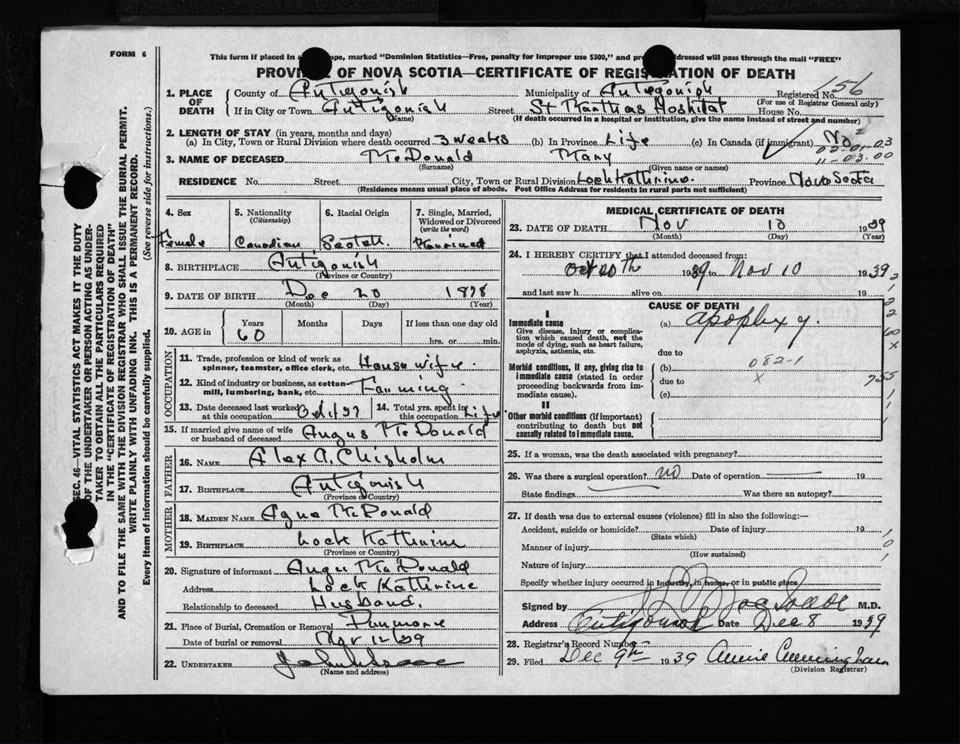 FORM 6
This form if placed in a ope, marked "Dominion Statistics—Free, penalty for improper use $300," and pr ddressed will pass through the mail "FREE"
PROVI E OF NOVA SCOTIA—CERTIFICATE OF REGIS ATION OF DEATH
1. PLACE OF DEATH County of Antigonish Municipality of Antigonish Registered No. 156
(For use of Registrar General only)
If in City or Town Antigonish Street St Marthas Hospital House No.
(Name) (If death occurred in a hospital or institution, give the name instead of street and number)
2. LENGTH OF STAY (in years, months and days)
(a) In City, Town or Rural Division where death occurred 3 weeks (b) In Province Life (c) In Canada (if immigrant) No 2
02-01-03
11-03-00
3. NAME OF DECEASED McDonald Mary
(Surname) (Given name or names)
RESIDENCE No. Street City, Town or Rural Division Lock Katherine Province Nova Scotia
(Residence means usual place of abode. Post Office Address for residents in rural parts not sufficient)
4. Sex Female
5. Nationality (Citizenship) Canadian
6. Racial Origin Scotch
7. Single, Married, Widowed or Divorced (write the word) Married
8. BIRTHPLACE Antigonish
(Province or Country)
9. DATE OF BIRTH Dec 20 1878
(Month) (Day) (Year)
10. AGE in Years Months Days If less than one day old
60 hrs. or min.
OCCUPATION
11. Trade, profession or kind of work as spinner, teamster, office clerk, etc. Housewife
12. Kind of industry or business, as cotton-mill, lumbering, bank, etc. Farming
13. Date deceased last worked at this occupation Oct/39
14. Total yrs. spent in this occupation Life
15. If married give name of wife or husband of deceased Angus McDonald
FATHER
16. NAME Alex A. Chisholm
17. BIRTHPLACE Antigonish
(Province or Country)
MOTHER
18. MAIDEN NAME McDonald
19. BIRTHPLACE Lock Katherine
(Province or Country)
20. Signature of informant Angus McDonald
Address Lock Katherine
Relationship to deceased Husband.
21. Place of Burial, Cremation or Removal Dunmore
Date of burial or removal Nov 12/39
22. UNDERTAKER
(Name and address)
MEDICAL CERTIFICATE OF DEATH
23. DATE OF DEATH Nov 10 1939
(Month) (Day) (Year)
24. I HEREBY CERTIFY that I attended deceased from:
Oct 20th 1939 to Nov 10 1939
and last saw h alive on 19
CAUSE OF DEATH
I
Immediate cause
Give disease, injury or complication which caused death, not the mode of dying, such as heart failure, asphyxia, asthenia, etc.
(a) Apoplexy.
due to
Morbid conditions, if any, giving rise to immediate cause (stated in order proceeding backwards from immediate cause).
(b) 082-1
due to x
(c)
II
Other morbid conditions (if important) contributing to death but not causally related to immediate cause.
25. If a woman, was the death associated with pregnancy?
26. Was there a surgical operation? no Date of operation 19
State findings Was there an autopsy?
27. If death was due to external causes (violence) fill in also the following:—
Accident, suicide or homicide? Date of injury 19
(State which)
Manner of injury
(How sustained)
Nature of injury
Specify whether injury occurred in industry, in home, or in public place
Signed by M.D.
Address Antigonish Date Dec 8 1939
28. Registrar's Record Number
29. Filed Dec 9th 1939 Annie Cunningham
(Division Registrar)
SEC. 46—VITAL STATISTICS ACT MAKES IT THE DUTY
OF THE UNDERTAKER OR PERSON ACTING AS UNDER-
TAKER TO OBTAIN ALL THE PARTICULARS REQUIRED
IN THE "CERTIFICATE OF REGISTRATION OF DEATH"
AND TO FILE THE SAME WITH THE DIVISION REGISTRAR WHO SHALL ISSUE THE BURIAL PERMIT.
WRITE PLAINLY WITH UNFADING INK. THIS IS A PERMANENT RECORD.
Every item of information should be carefully supplied. (See reverse side for instructions.)